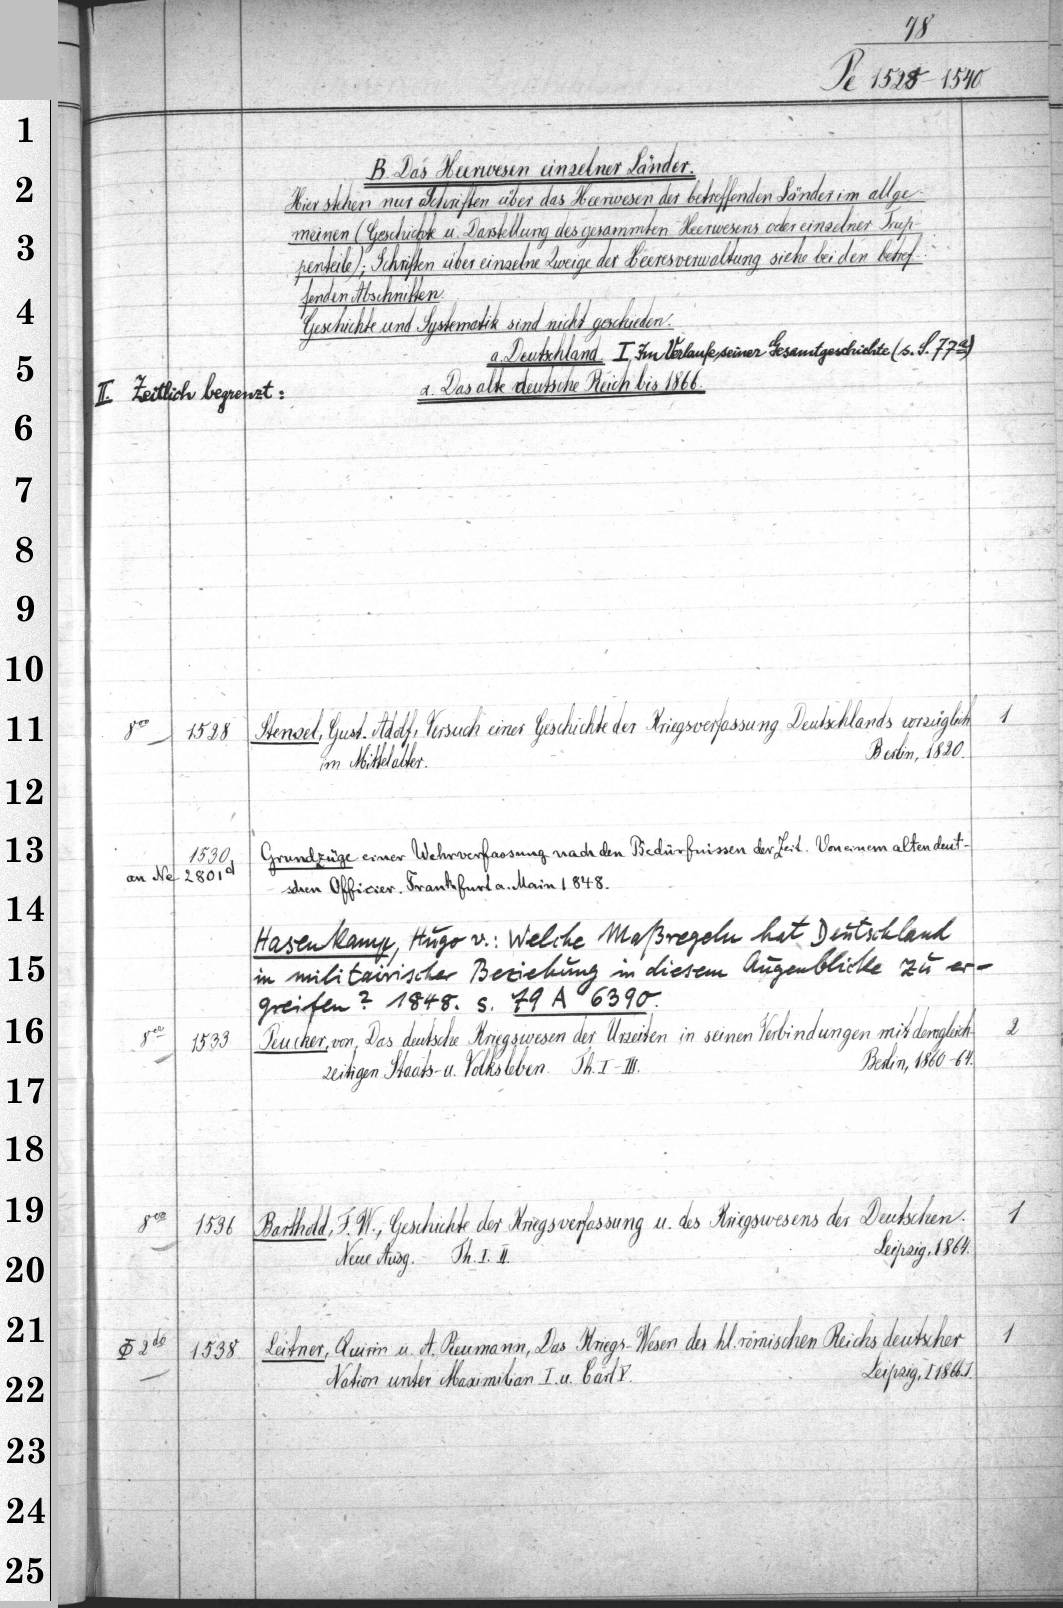 78
Pe 1528–1540
B. Das Heerwesen einzelner Länder.
Hier stehen nur Schriften über das Heerwesen der betreffenden Länder im allge-
meinen (Geschichte u. Darstellung des gesammten Heerwesens oder einzelner Trup-
penteile); Schriften über einzelne Zweige der Heeresverwaltung siehe bei den betref-
fenden Abschnitten.
Geschichte und Systematik sind nicht geschieden.
a. Deutschland I, Im Verlaufe seiner Gesamtgeschichte (s. S. 77a)
II. Zeitlich begrenzt: α. Das alte deutsche Reich bis 1866.
8vo 1528 Stenzel, Gust. Adolf, Versuch einer Geschichte der Kriegsverfassung Deutschlands vorzüglich 1
im Mittelalter. Berlin, 1820.
1530 Grundzüge einer Wehrverfassung nach den Bedürfnissen der Zeit. Von einem alten deut-
an Ne 2801d schen Officier. Frankfurt a. Main 1848.
Hasenkamp, Hugo v.: Welche Maßregeln hat Deutschland
in militairischer Beziehung in diesem Augenblicke zu er-
greifen? 1848. s. 79 A 6390.
8vo 1533 Peucker, von, Das deutsche Kriegswesen der Urzeiten in seinen Verbindungen mit dem gleich- 2
zeitigen Staats- u. Volksleben. Th. I–III. Berlin, 1860–64.
8vo 1536 Barthold, F. W., Geschichte der Kriegsverfassung u. des Kriegswesens der Deutschen. 1
Neue Ausg. Th. I. II. Leipzig, 1864.
Φ 2do 1538 Leitner, Quirin u. A. Reumann, Das Kriegs-Wesen des hl. römischen Reichs deutscher 1
Nation unter Maximilian I. u. Carl V. Leipzig, 1866.
1
2
3
4
5
6
7
8
9
10
11
12
13
14
15
16
17
18
19
20
21
22
23
24
25